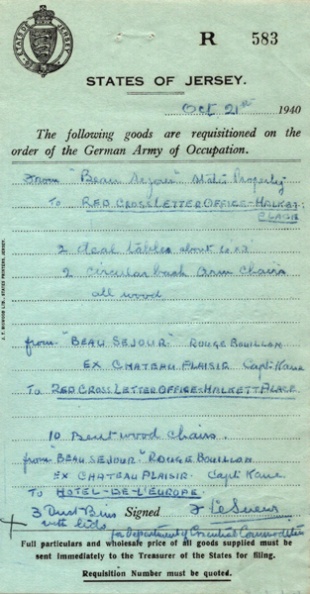 STATES OF JERSEY
R 583
STATES OF JERSEY.
Oct 21st 1940
The following goods are requisitioned on the
order of the German Army of Occupation.
From "Beau Sejour" States Property
To RED CROSS LETTER OFFICE - HALKETT
PLACE
2 deal tables about
2 circular back arm chairs
all wood
from "BEAU SEJOUR" ROUGE BOUILLON
EX CHATEAU PLAISIR Capt Kane
To RED CROSS LETTER OFFICE - HALKETT PLACE
10 Bentwood Chairs.
from "BEAU SEJOUR" ROUGE BOUILLON
EX CHATEAU PLAISIR. Capt Kane
To HOTEL-DE-L'EUROPE.
3 Dust Bins Signed Le Sueur
with lids for Department of Essential Commodities
Full particulars and wholesale price of all goods supplied must be
sent immediately to the Treasurer of the States for filing.
Requisition Number must be quoted.